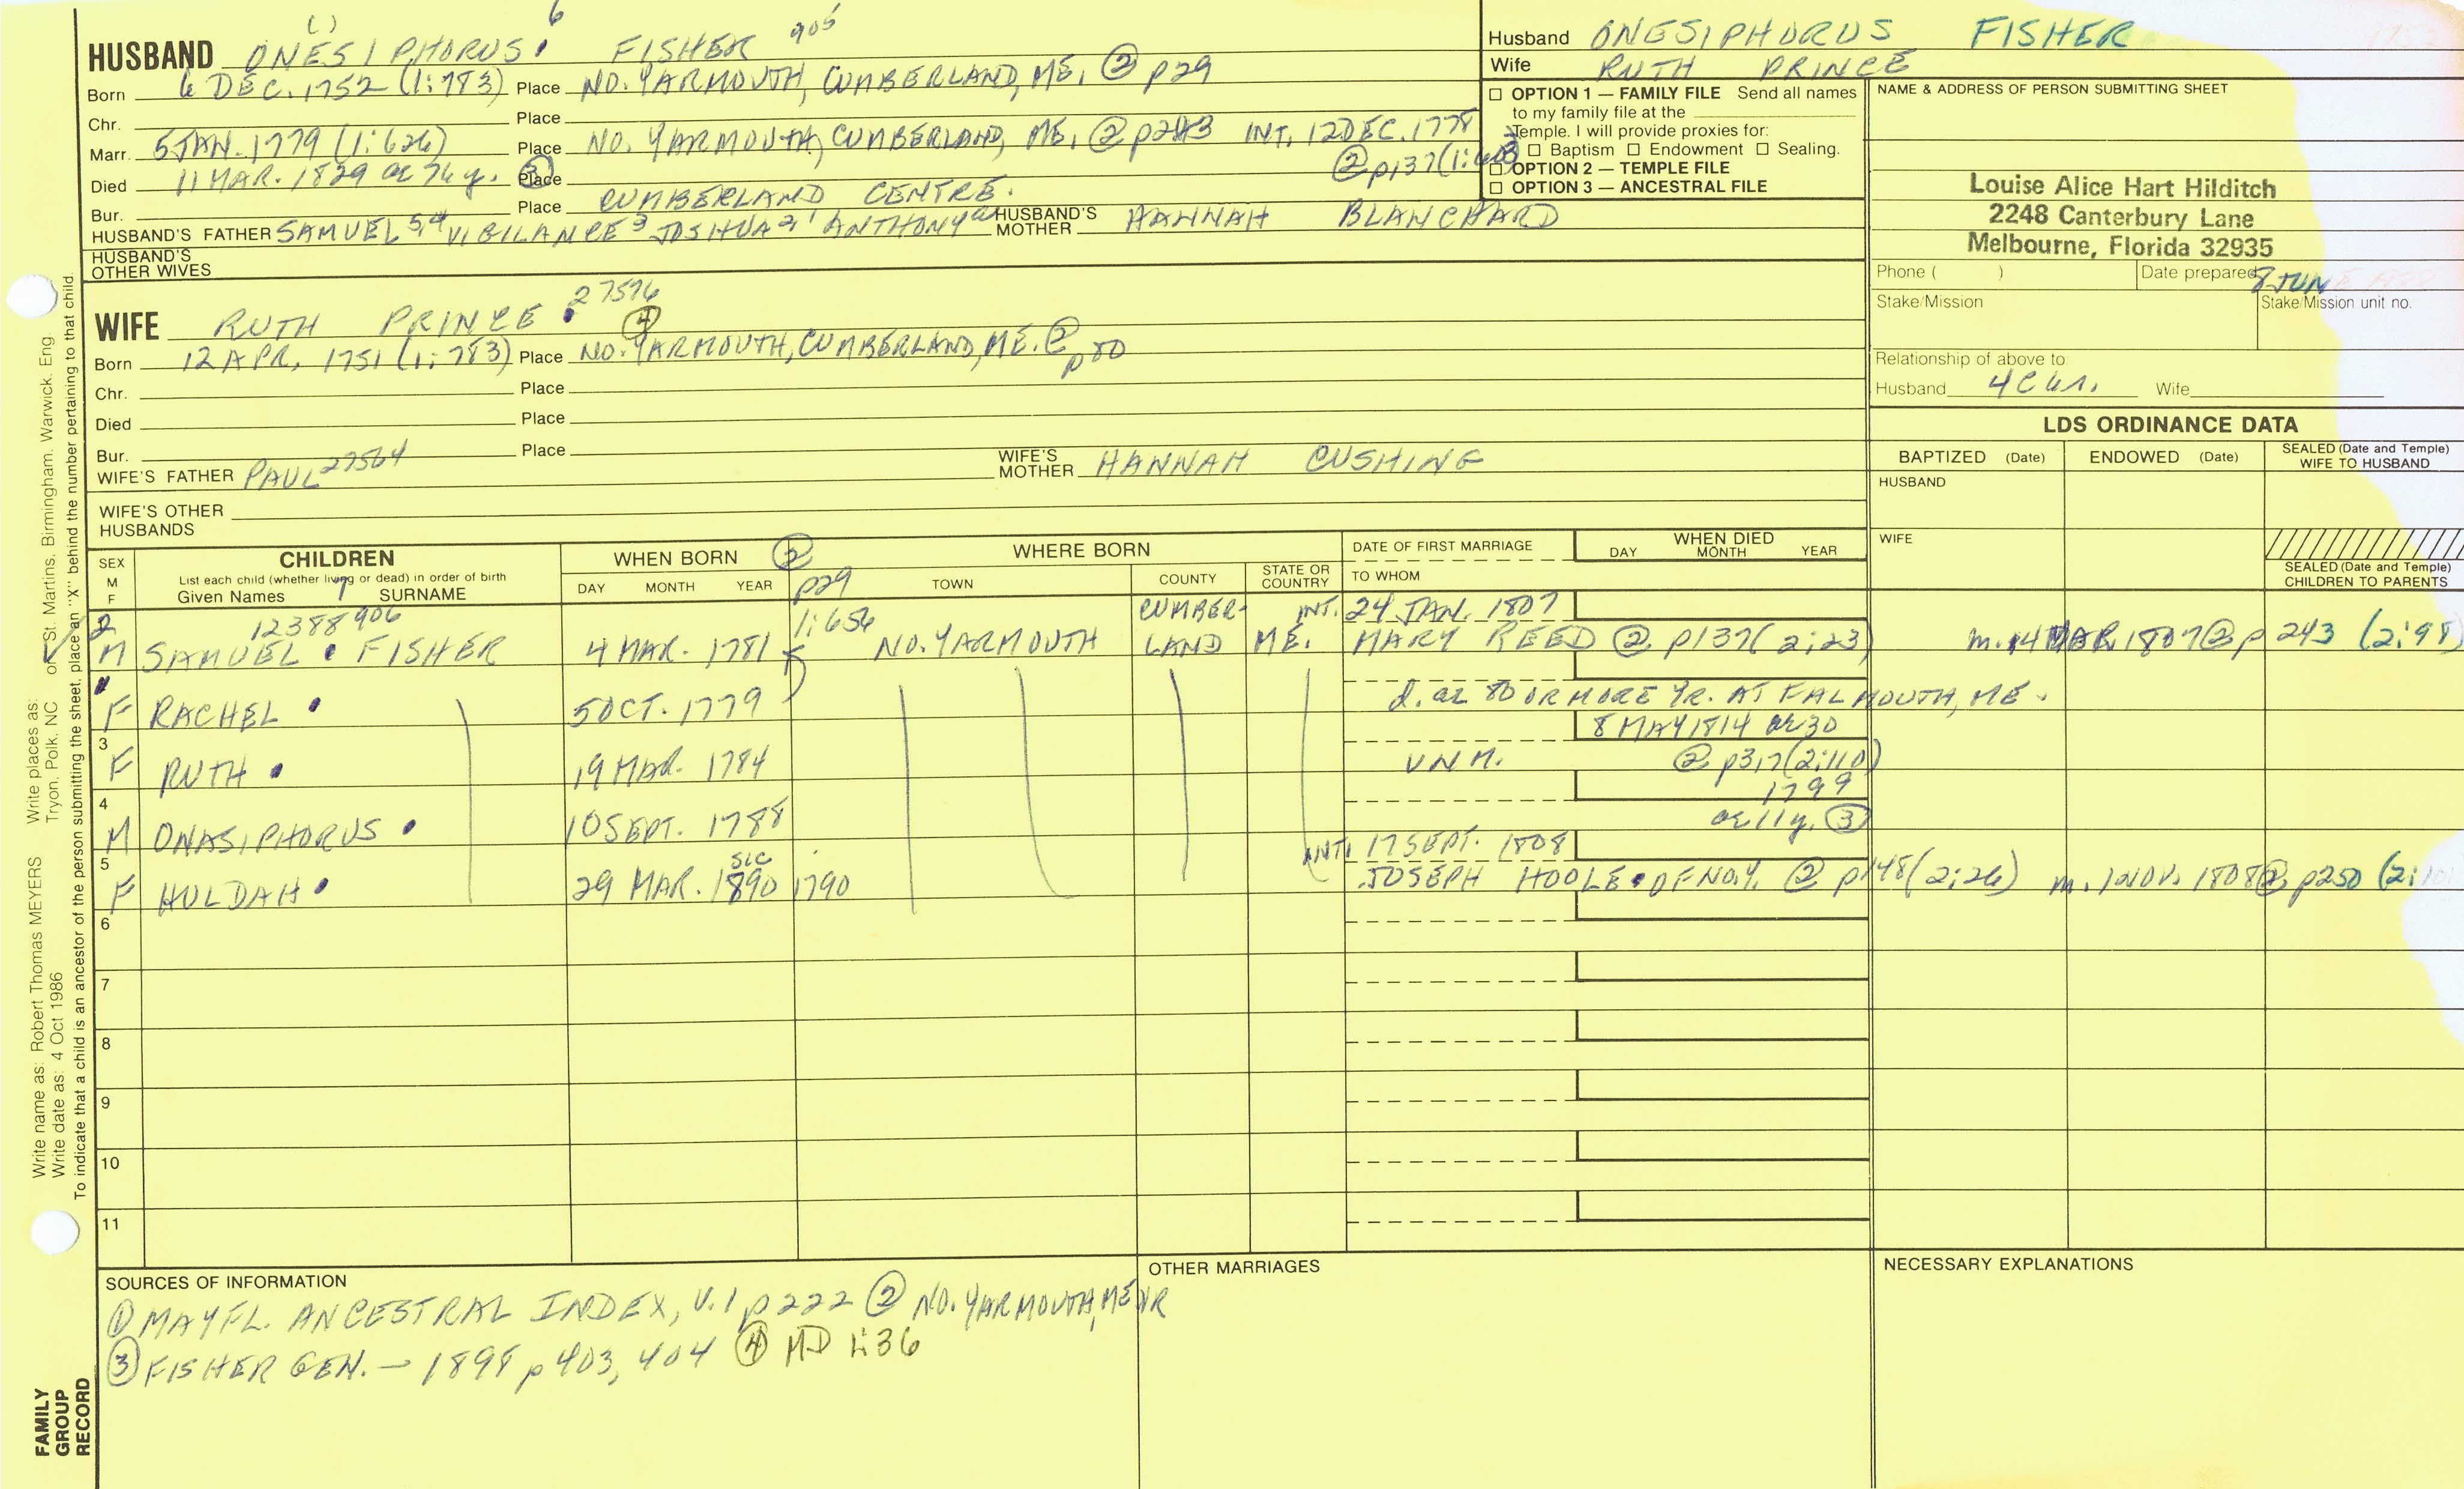 ( ) 6
HUSBAND ONESIPHORUS FISHER 905
Born 6 DEC. 1752 (1:783) Place NO. YARMOUTH, CUMBERLAND, ME, ② p29
Chr. Place
Marr. 5 JAN. 1779 (1:626) Place NO. YARMOUTH, CUMBERLAND, ME, ② p243 INT. 12 DEC. 1778
② p137 (1:
Died 11 MAR. 1829 ae 76 y. ③ Place
Bur. Place CUMBERLAND CENTRE.
HUSBAND'S FATHER SAMUEL 5,4 VIGILANCE 3 JOSHUA 2, 1 ANTHONY HUSBAND'S MOTHER HANNAH BLANCHARD
HUSBAND'S OTHER WIVES
WIFE RUTH PRINCE 27576
④
Born 12 APR. 1751 (1:783) Place NO. YARMOUTH, CUMBERLAND, ME. ② p80
Chr. Place
Died Place
Bur. Place
WIFE'S FATHER PAUL 27564 WIFE'S MOTHER HANNAH CUSHING
WIFE'S OTHER HUSBANDS
Husband ONESIPHORUS FISHER
Wife RUTH PRINCE
OPTION 1 — FAMILY FILE Send all names
to my family file at the
Temple. I will provide proxies for:
Baptism Endowment Sealing.
OPTION 2 — TEMPLE FILE
OPTION 3 — ANCESTRAL FILE
NAME & ADDRESS OF PERSON SUBMITTING SHEET
Louise Alice Hart Hilditch
2248 Canterbury Lane
Melbourne, Florida 32935
Phone ( ) Date prepared 8 JUNE
Stake/Mission Stake/Mission unit no.
Relationship of above to:
Husband 4C Wife
LDS ORDINANCE DATA
BAPTIZED (Date) ENDOWED (Date) SEALED (Date and Temple) WIFE TO HUSBAND
HUSBAND
WIFE
SEALED (Date and Temple) CHILDREN TO PARENTS
SEX M F
CHILDREN
List each child (whether living or dead) in order of birth
Given Names 7 SURNAME
WHEN BORN ② p29
DAY MONTH YEAR
WHERE BORN
TOWN COUNTY STATE OR COUNTRY
DATE OF FIRST MARRIAGE
TO WHOM
WHEN DIED
DAY MONTH YEAR
12388 906 1:656 CUMBER- INT. 24 JAN. 1807
2 M SAMUEL FISHER 4 MAR. 1781 NO. YARMOUTH LAND ME. MARY REED ② p137 (2:23) m. 14 MAR 1807 ② p 243 (2:98)
1 F RACHEL 5 OCT. 1779 d. ae 80 OR MORE YR. AT FALMOUTH, ME.
8 MAY 1814 ae 30
3 F RUTH 19 MAR. 1784 UNM. ② p317 (2:110)
1799
4 M ONASIPHORUS 10 SEPT. 1788 ae 11 y. ③
SIC INT. 17 SEPT. 1808
5 F HULDAH 29 MAR. 1890 1790 JOSEPH HOOLE OF NO. Y. ② p148 (2:26) m. 1 NOV. 1808 ② p250 (2:
6
7
8
9
10
11
SOURCES OF INFORMATION
① MAYFL. ANCESTRAL INDEX, V.1 p222 ② NO. YARMOUTH, ME VR
③ FISHER GEN. — 1898 p 403, 404 ④ MD 1:36
OTHER MARRIAGES
NECESSARY EXPLANATIONS
Write name as: Robert Thomas MEYERS Write places as:
Write date as: 4 Oct 1986 Tryon, Polk, NC or St. Martins, Birmingham, Warwick, Eng.
To indicate that a child is an ancestor of the person submitting the sheet, place an "X" behind the number pertaining to that child.
FAMILY
GROUP
RECORD